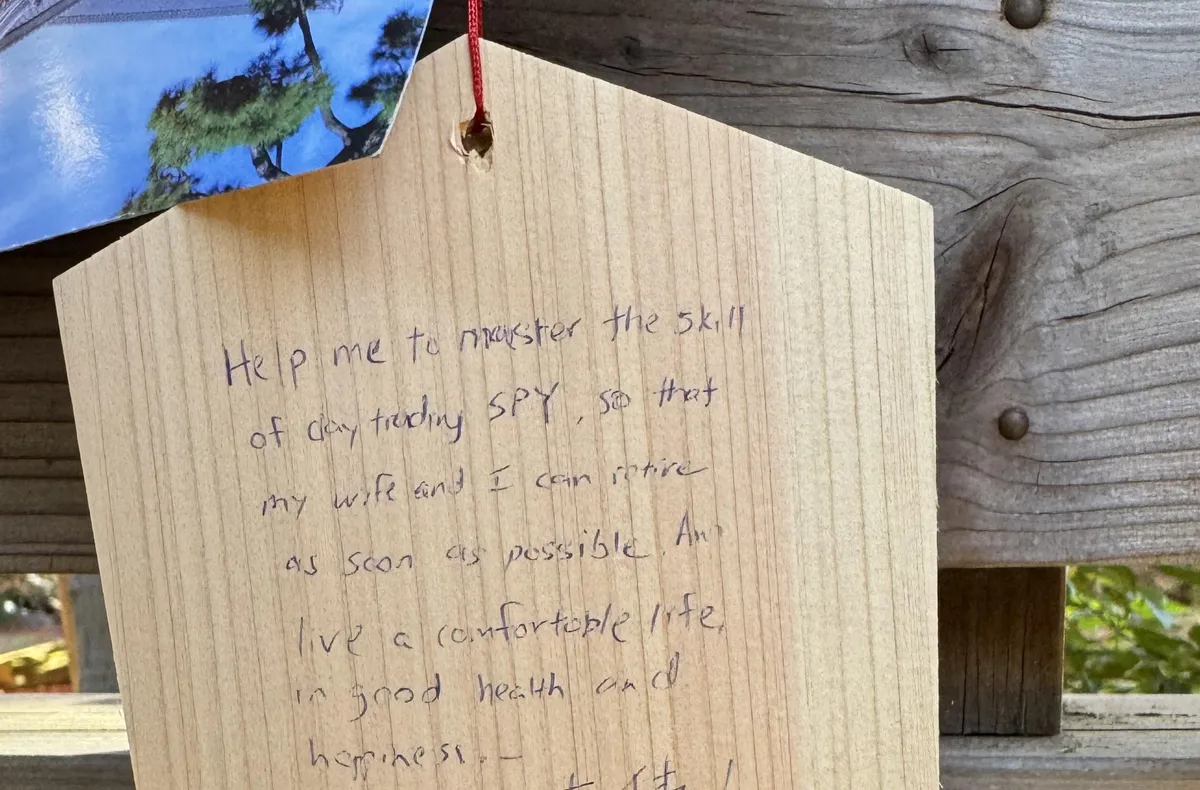 Help me to master the skill
of day trading SPY, so that
my wife and I can retire
as soon as possible. An
live a comfortable life,
in good health and
happiness. -